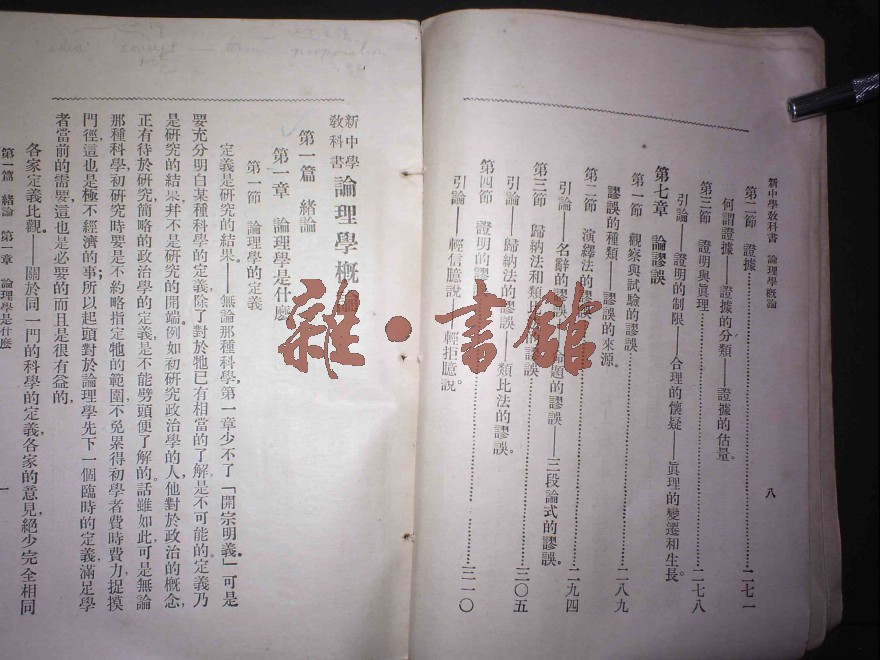 新中學敎科書　論理學槪論
八
第二節　證據……二七一
何謂證據——證據的分類——證據的估量。
第三節　證明與眞理……二七八
引論——證明的制限——合理的懷疑——眞理的變遷和生長。
第七章　論謬誤
第一節　觀察與試驗的謬誤……二八九
謬誤的種類——謬誤的來源。
第二節　演繹法的……二九四
引論——名辭的謬誤——命題的謬誤——三段論式的謬誤。
第三節　歸納法和類……的謬誤……三〇五
引論——歸納法的謬誤——類比法的謬誤。
第四節　證明的謬……三一〇
引論——輕信臆說——輕拒臆說。
雜·書館
idea concept term proposition
新中學敎科書　論理學概
第一篇　緒論
第一章　論理學是什麽
第一節　論理學的定義
定義是研究的結果——無論那種科學，第一章少不了「開宗明義。」可是
要充分明白某種科學的定義，除了對於牠已有相當的了解，是不可能的。定義乃
是研究的結果，并不是研究的開端。例如初研究政治學的人，他對於政治的槪念，
正有待於研究，簡略的政治學的定義，是不能劈頭便了解的。話雖如此，可是無論
那種科學，初研究時要是不約略指定牠的範圍，不免累得初學者費時費力，捉摸
門徑，這也是極不經濟的事；所以起頭對於論理學先下一個臨時的定義，滿足學
者當前的需要，這也是必要的，而且是很有益的，
各家定義比觀——關於同一門的科學的定義，各家的意見，絕少完全相同
第一篇　緒論　第一章　論理學是什麽
一